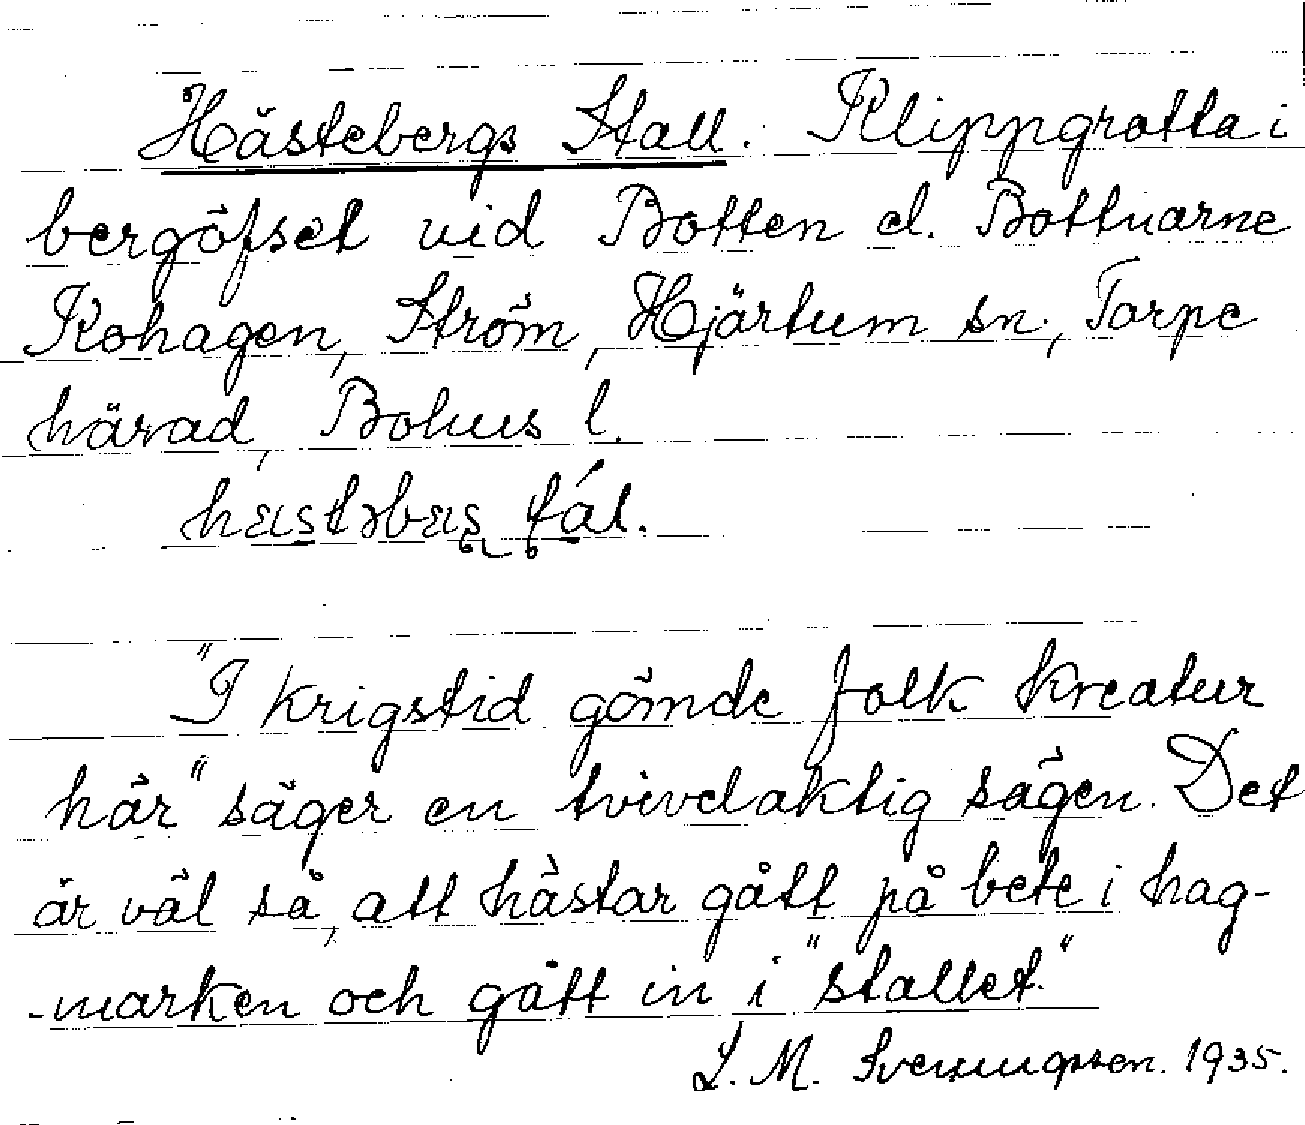 Hästebergs Stall. Klippgrotta i
bergöfset vid Botten el. Bottnarne
Kohagen, Ström, Hjärtum sn., Torpe
härad, Bohus l.
"I krigstid gömde folk kreatur
här" säger en tvivelaktig sägen. Det
är väl så, att hästar gått på bete i hag-
-marken och gått in i "stallet."
L. M. Svenungsson. 1935.